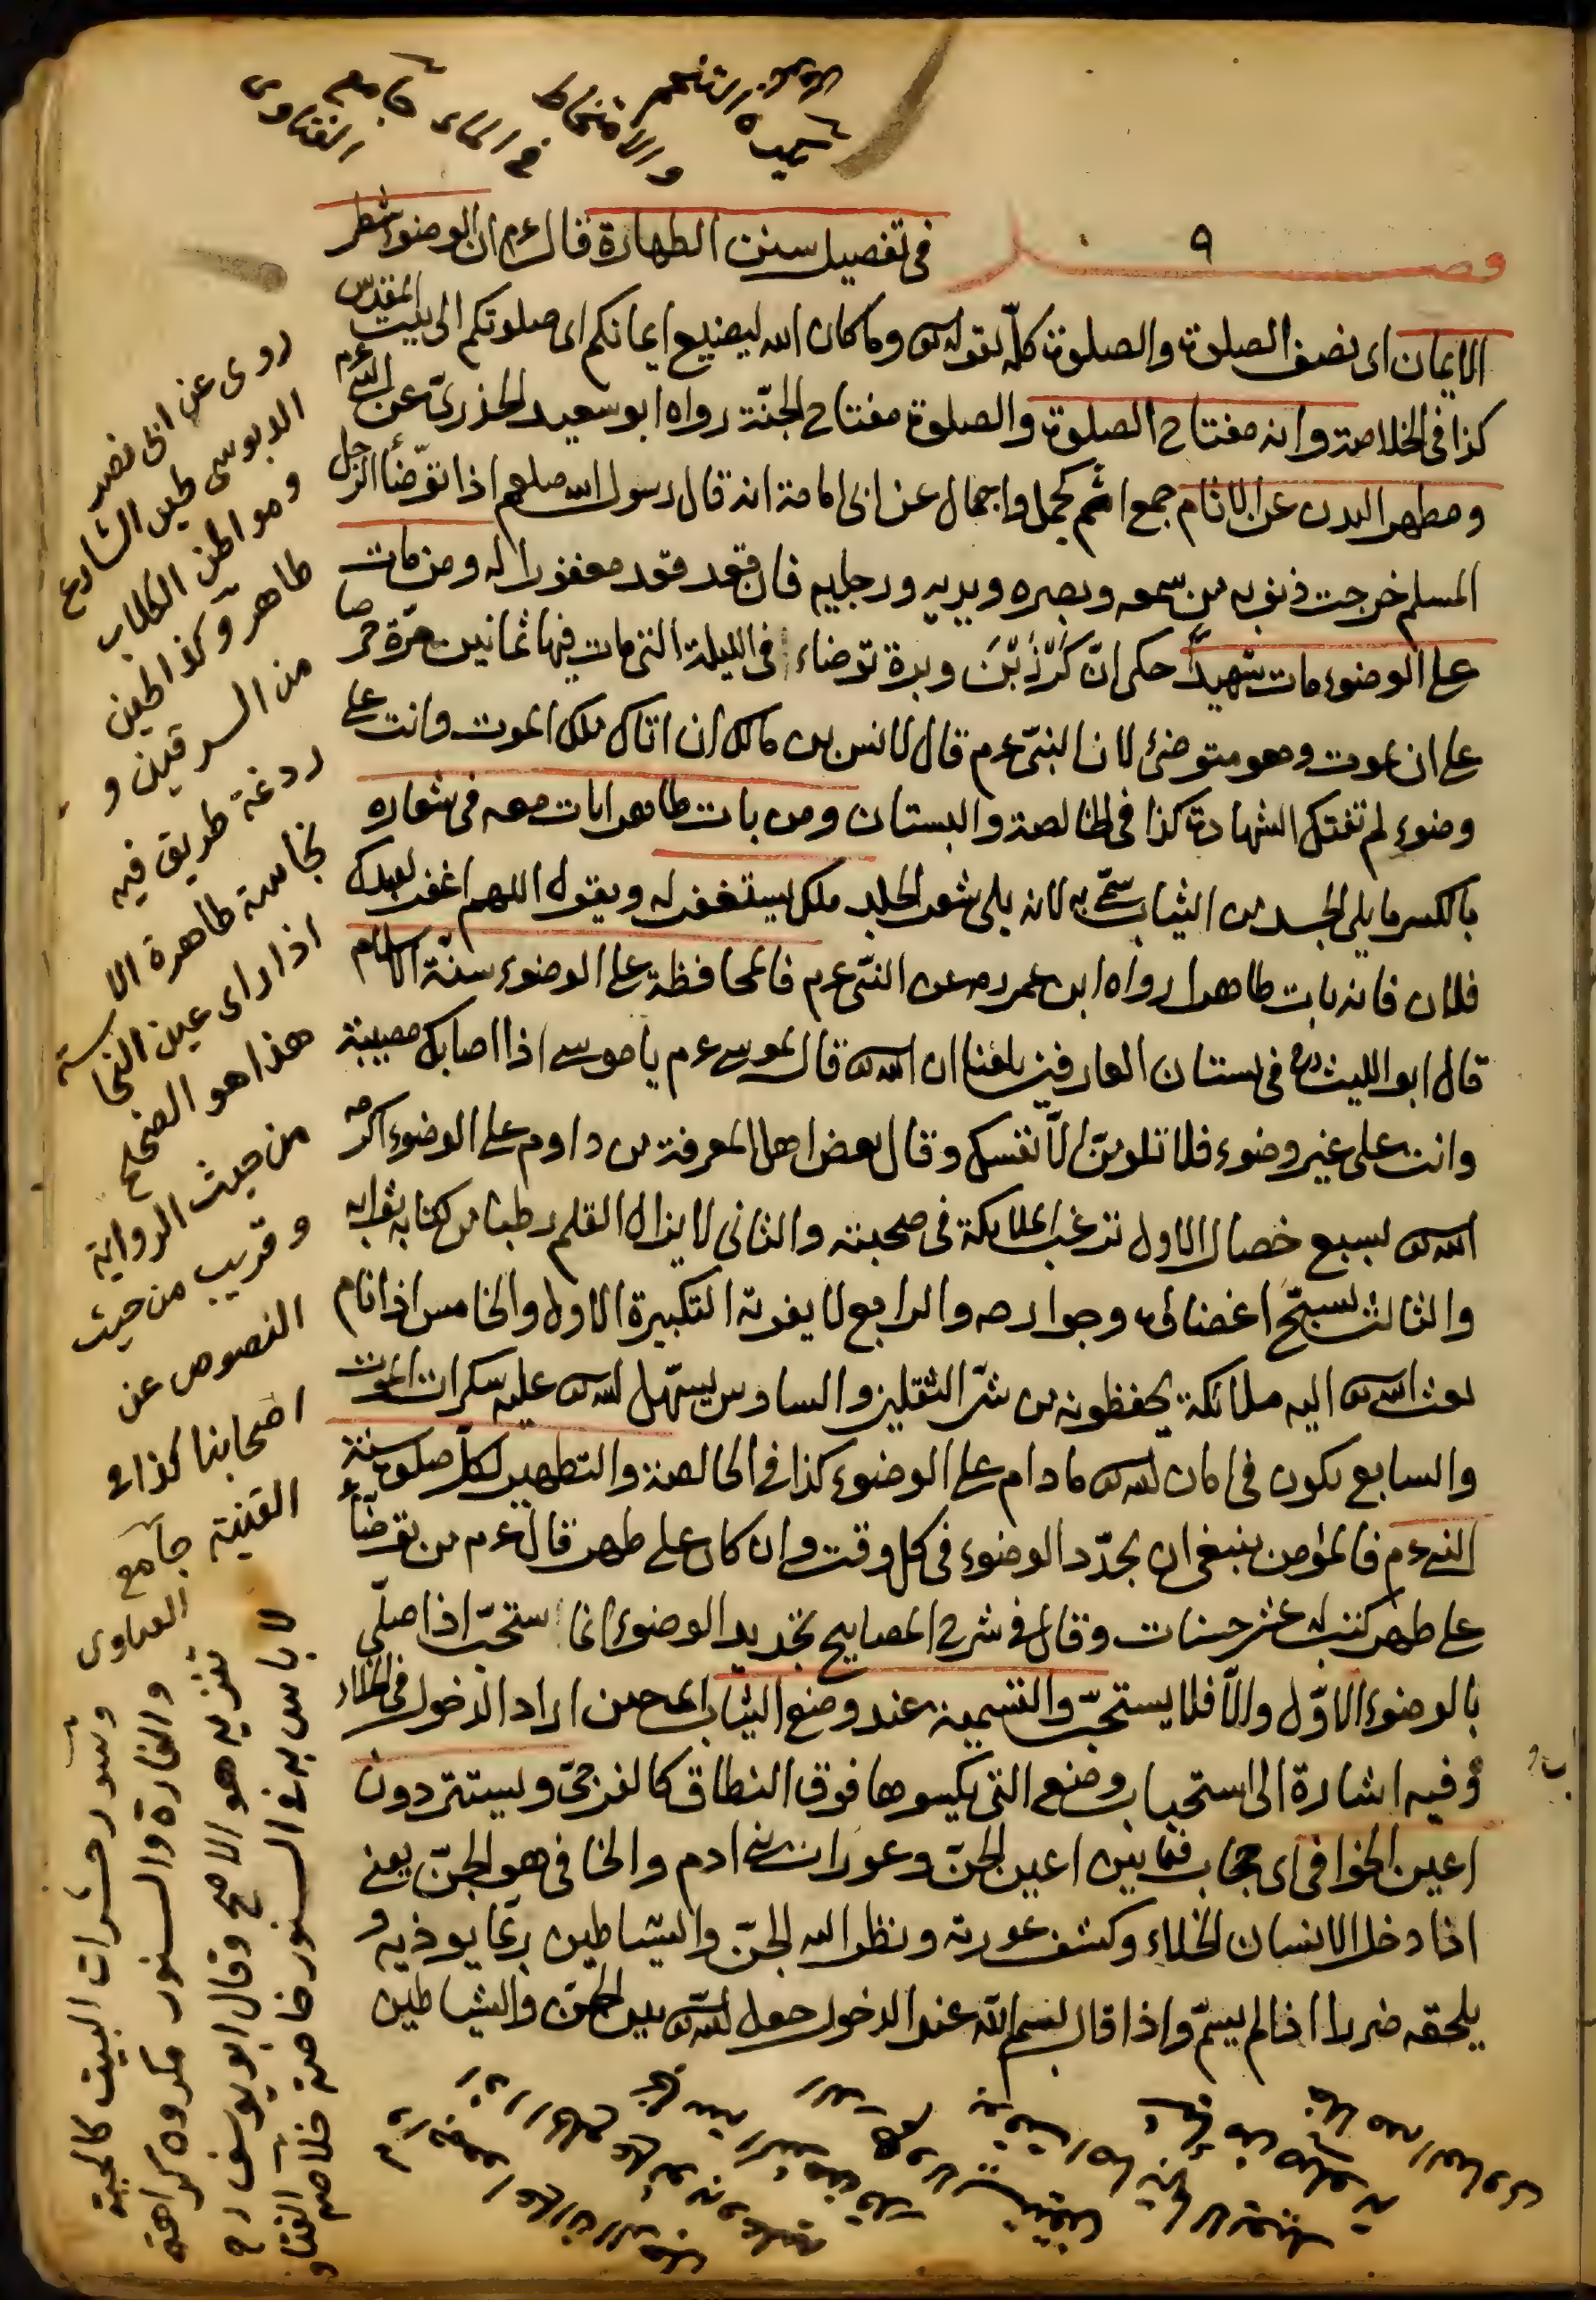 فصل ٩ في تفصيل سنن الطهارة قال عم ان الوضوء شطر
الايمان اى نصف الصلوة والصلوة كلّه لقوله تعالى وما كان الله ليضيع ايمانكم اى صلوتكم الى بيت المقدس
كذا في الخلاصة وانه مفتاح الصلوة والصلوة مفتاح الجنّة رواه ابو سعيد الخدرىّ عن النبي عم
ومطهر البدن عن الاثام جمع اثم كحمل واحمال عن ابى امامة انه قال رسول الله صلعم اذا توضّأ الرجل
المسلم خرجت ذنوبه من سمعه وبصره ويديه ورجليه فان قعد قعد مغفورا له ومن مات
على الوضوء مات شهيدًا حكى انّ كُرْز بْنَ وبرة توضاء في الليلة التى مات فيها ثمانين مرّة حرصا
على ان يموت وهو متوضئ لان النبىّ عم قال لانس بن مالك ان اتاك ملك الموت وانت على
وضوء لم تفتك الشهادة كذا في الخالصة والبستان ومن بات طاهرا بات معه في شعاره
بالكسر ما يلى الجسد من الثياب سمّى به لانه يلى شعر الجلد ملك يستغفر له ويقول اللهم اغفر لعبدك
فلان فانه بات طاهرا رواه ابن عمر رضه عن النبّى عم فالمحافظة على الوضوء سنّة الاسلام
قال ابو الليث ره في بستان العارفين بلغنا ان الله تعالى قال لموسى عم يا موسى اذا اصابك مصيبة
وانت على غير وضوء فلا تلومنّ الّا نفسك وقال بعض اهل المعرفة من داوم على الوضوء اكرمه
الله تعالى بسبع خصال الاول ترغب الملايكة في صحبته والثانى لا يزال القلم رطبا من كتابة ثوابه
والثالث تسبّح اعضائه وجوارحه والرابع لا يفوته التكبيرة الاولى والخامس اذا نام
بعث الله تعالى اليه ملائكة يحفظونه من شرّ الثقلين والسادس يسهّل الله تعالى عليه سكرات الموت
والسابع يكون في امان الله تعالى ما دام على الوضوء كذا في الخالصة والتطهير لكلّ صلوة سنة
النبي عم فالمؤمن ينبغى ان يجدّد الوضوء في كل وقت وان كان على طهر قال عم من توضّأ
على طهر كتب له عشر حسنات وقال في شرح المصابيح تجديد الوضوء انما يستحبّ اذا صلّى
بالوضوء الاوّل والّا فلا يستحبّ والتسمية عند وضع الثياب اى حين اراد الدخول في الخلاء
وفيه اشارة الى استحباب وضع التى يكسوها فوق النطاق كالفرجىّ وليستتر دون
اعين الخوافى اى حجاب فيما بين اعين الجنّ وعورات بنى ادم والخافى هو الجنّ يعنى
اذا دخل الانسان الخلاء وكشف عورته ونظر اليه الجنّ والشياطين ربّما يؤذيه و
يلحقه ضررا اذا لم يسمّ واذا قال بسم الله عند الدخول جعل الله تعالى بين الجنّ والشياطين
روى عن ابى نصر
الدبوسى طين الشارع
ومواطن الكلاب
طاهر وكذا الطين
من السرقين و
ردغة طريق فيه
نجاسة طاهرة الا
اذا راى عين النجاسة
هذا هو الصحيح
من حيث الرواية
وقريب من حيث
النصوص عن
اصحابنا كذا فى
القنية جامع
الفتاوى
وسور حشرات البيت كالحية
والفارة والسنور مكروه كراهة
تنزيه هو الاصح وقال ابو يوسف رح
لا باس به سور السنور خاصة خلاصة الفتاو
في الماء جامع
الفتاوى